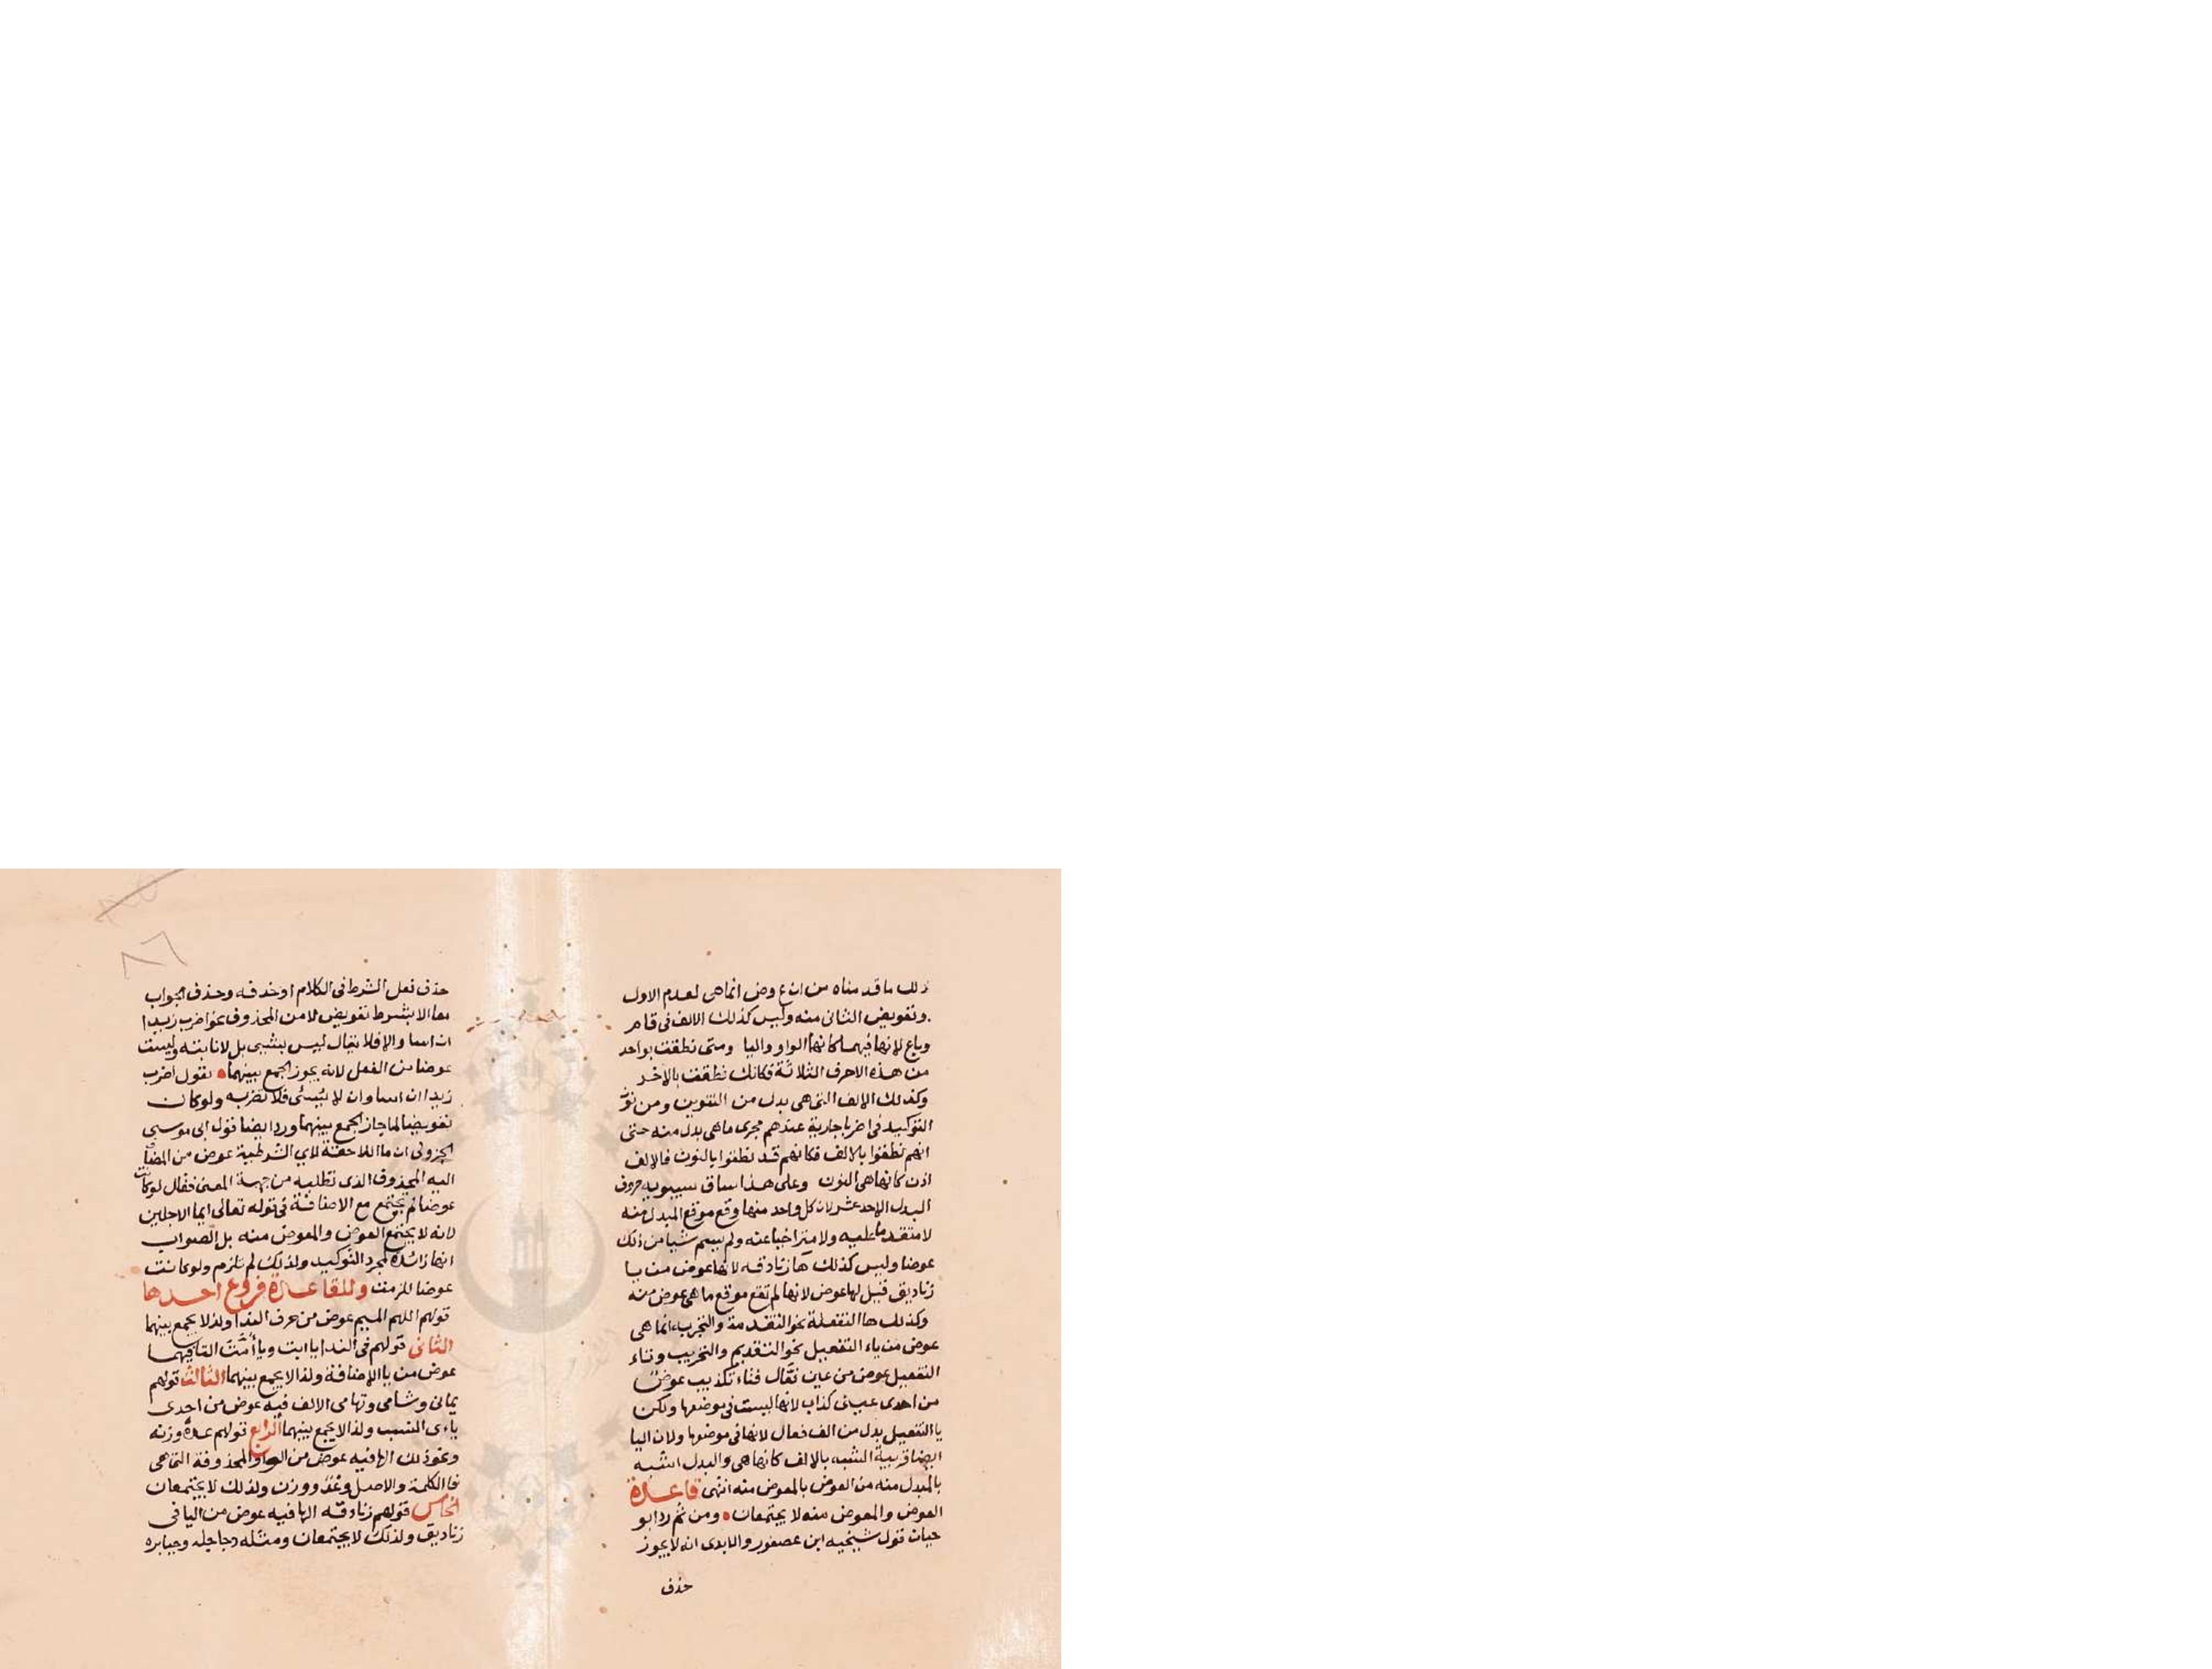 ذلك ما قدمناه من ان ع وض انما هى لعدم الاول
وتعويض الثانى منه وليس كذلك الالف فى قام
وباع لانها فيهما كانها الواو واليا ومتى نطقت بواحد
من هذه الاحرف الثلاثة فكانك نطقت بالاخر
وكذلك الالف التى هى بدل من التنوين ومن نون
التوكيد فى اضربا جارية عندهم مجرى ما هى بدل منه حتى
انهم نطقوا بالالف فكانهم قد نطقوا بالنون فالالف
اذن كانها هى النون وعلى هذا ساق سيبويه حروف
البدل الاحد عشر لان كل واحد منها وقع موقع المبدل منه
لا متقدما عليه ولا متراخيا عنه ولم يسم شيا من ذلك
عوضا وليس كذلك ها زنادقه لانها عوض من يا
زناديق قيل لها عوض لانها لم تقع موقع ما هى عوض منه
وكذلك ها التفعلة نحو التقدمة والتجربه انما هى
عوض من ياء التفعيل نحو التقديم والتجريب وتاء
التفعيل عوض من عين فعّال فتاء تكذيب عوض
من احدى عينى كذاب لانها ليست فى موضعها ولكن
يا التفعيل بدل من الف فعال لانها فى موضعها ولان اليا
ايضا قريبة الشبه بالالف كانها هى والبدل اشبه
بالمبدل منه من العوض بالمعوض منه انتهى قاعدة
العوض والمعوض منه لا يجتمعان ومن ثم رد ابو
حيان قول شيخيه ابن عصفور والابدى انه لا يجوز
حذف
حذف فعل الشرط فى الكلام او حذفه وحذف الجواب
معا الا بشرط تعويض لا من المحذوف نحو اضرب زيدا
ان اسا والا فلا يقال ليس بشيى بل لا نابته وليست
عوضا من الفعل لانه يجوز الجمع بينهما تقول اضرب
زيدا ان اسا وان لا يسئى فلا تضربه ولو كان
تعويضا لما جاز الجمع بينهما ورد ايضا قول ابى موسى
الجزولى ان ما اللاحقة لاي الشرطية عوض من المضاف
اليه المحذوف الذى تطلبه من جهة المعنى فقال لو كانت
عوضا لم تجتمع مع الاضافة فى قوله تعالى ايما الاجلين
لانه لا يجتمع العوض والمعوض منه بل الصواب
انها زائدة لمجرد التوكيد ولذلك لم تلزم ولو كانت
عوضا للزمت وللقاعدة فروع احدها
قولهم اللهم الميم عوض من حرف الندا ولذا لا يجمع بينهما
الثانى قولهم فى الندا يا ابت ويا أمّت التا فيهما
عوض من يا الاضافة ولذا لا يجمع بينهما الثالث قولهم
يمانى وشامى وتهامى الالف فيه عوض من احدى
ياءى النسب ولذا لا يجمع بينهما الرابع قولهم عدة وزنه
ونحو ذلك الها فيه عوض من الواو المحذوفة التى هى
فا الكلمة والاصل وعد ووزن ولذلك لا يجتمعان
الخامس قولهم زنادقه الها فيه عوض من اليا فى
زناديق ولذلك لا يجتمعان ومثله دجاجله وجبابره